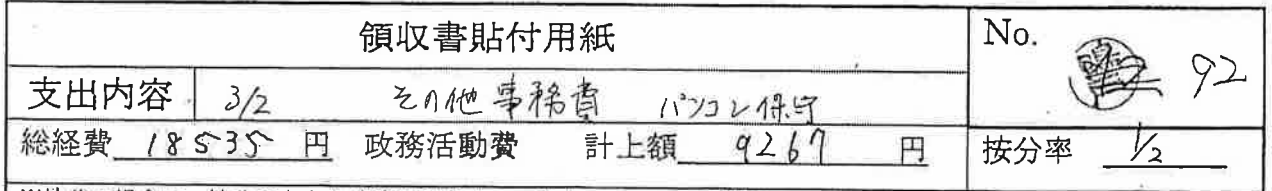 領収書貼付用紙
No. 92
支出内容 3/2 その他事務費 パソコン保守
総経費 18535 円 政務活動費 計上額 9267 円
按分率 1/2